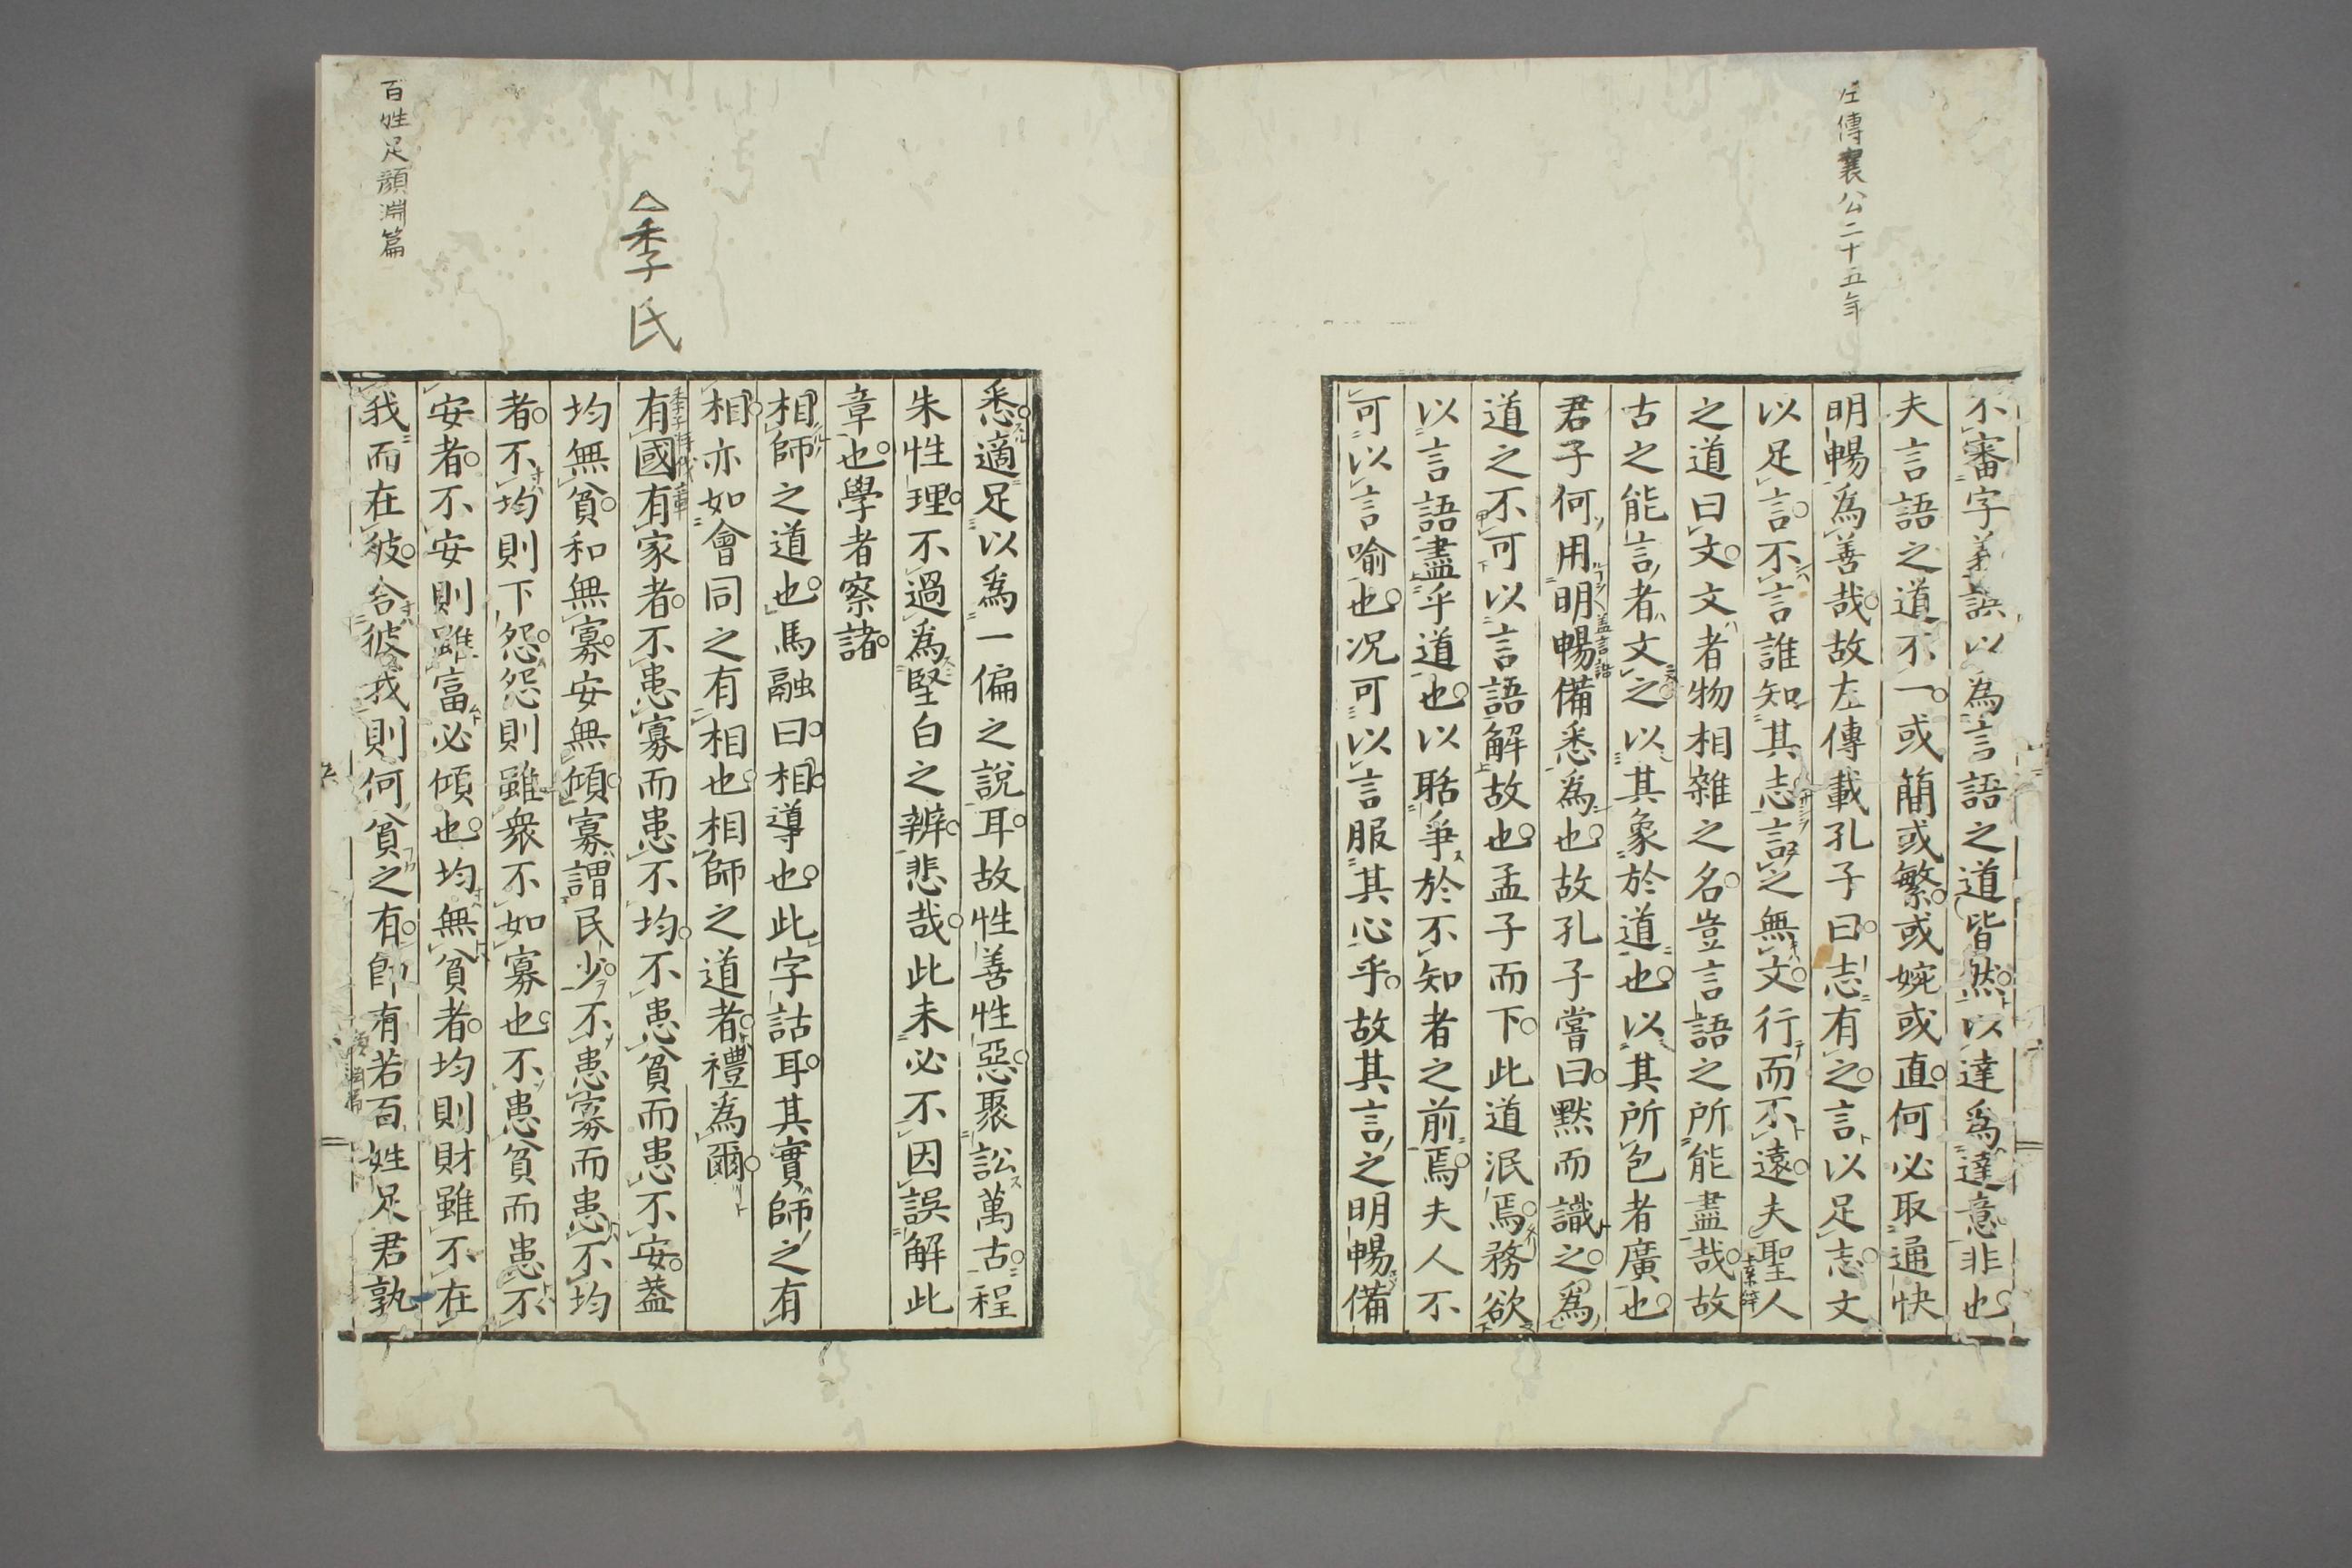 左傳襄公二十五年
不審字義誤以為言語之道皆然以達爲達意非也
夫言語之道不一或簡或繁或婉或直何必取通快
明暢爲善哉故左傳載孔子曰志有之言以足志文
以足言不言誰知其志言之無文行而不遠夫聖人
之道曰文文者物相雜之名豈言語之所能盡哉故
古之能言者文之以其象於道也以其所包者廣也
君子何用明暢備悉爲也故孔子嘗曰默而識之爲
道之不可以言語解故也孟子而下此道泯焉務欲
以言語盡乎道也以聒爭於不知者之前焉夫人不
可以言喻也况可以言服其心乎故其言之明暢備
悉適足以爲一偏之說耳故性善性惡聚訟萬古程
朱性理不過爲堅白之辨悲哉此未必不因誤解此
章也學者察諸
相師之道也馬融曰相導也此字詁耳其實師之有
相亦如會同之有相也相師之道者禮爲爾
△季氏
季子將伐章
有國有家者不患寡而患不均不患貧而患不安蓋
均無貧和無寡安無傾寡謂民少不患寡而患不均
者不均則下怨怨則雖衆不如寡也不患貧而患不
安者不安則雖富必傾也均無貧者均則財雖不在
百姓足顏淵篇
我而在彼合彼我則何貧之有卽有若百姓足君孰